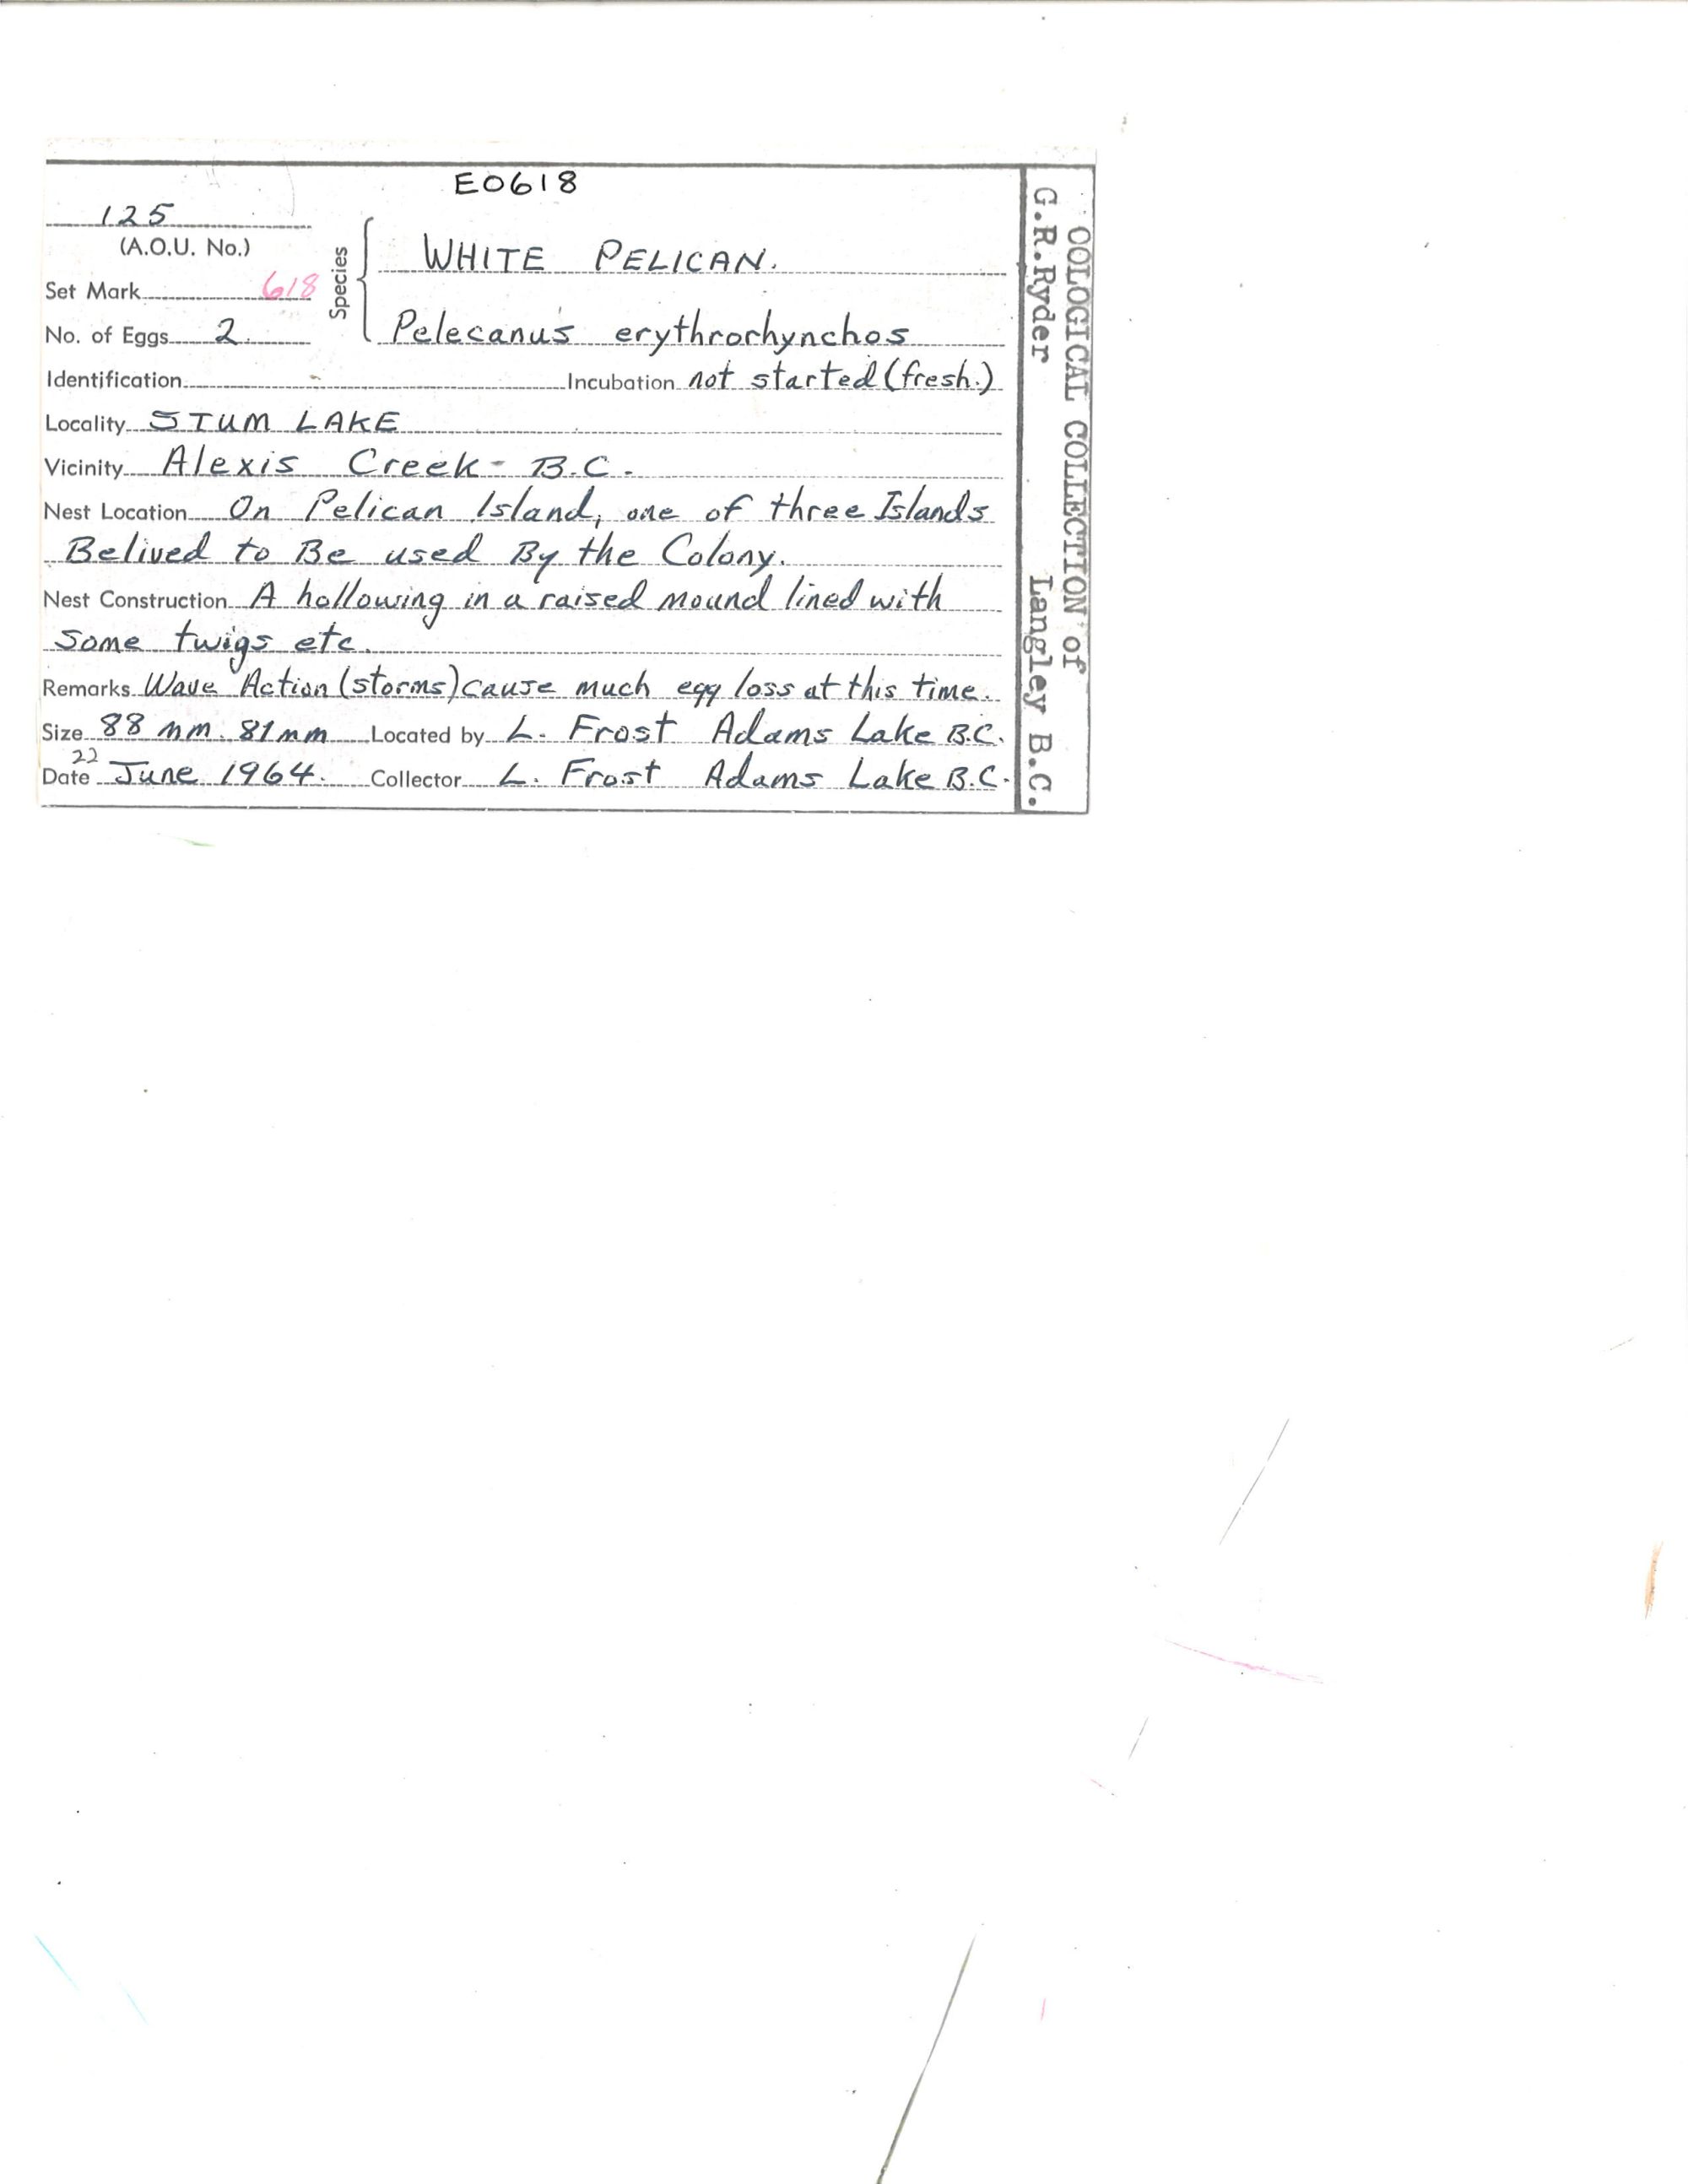 E0618
125
(A.O.U. No.)
Species
WHITE PELICAN.
Set Mark 618
Pelecanus erythrorhynchos
No. of Eggs 2.
Identification Incubation not started (fresh.)
Locality STUM LAKE
Vicinity Alexis Creek - B.C.
Nest Location On Pelican Island, one of three Islands
Belived to Be used By the Colony.
Nest Construction A hollowing in a raised mound lined with
some twigs etc.
Remarks Wave Action (storms) cause much egg loss at this time.
Size 88 mm. 81mm Located by L. Frost Adams Lake B.C.
Date 22 June 1964. Collector L. Frost Adams Lake B.C.
OOLOGICAL COLLECTION of
G.R.Ryder Langley B.C.